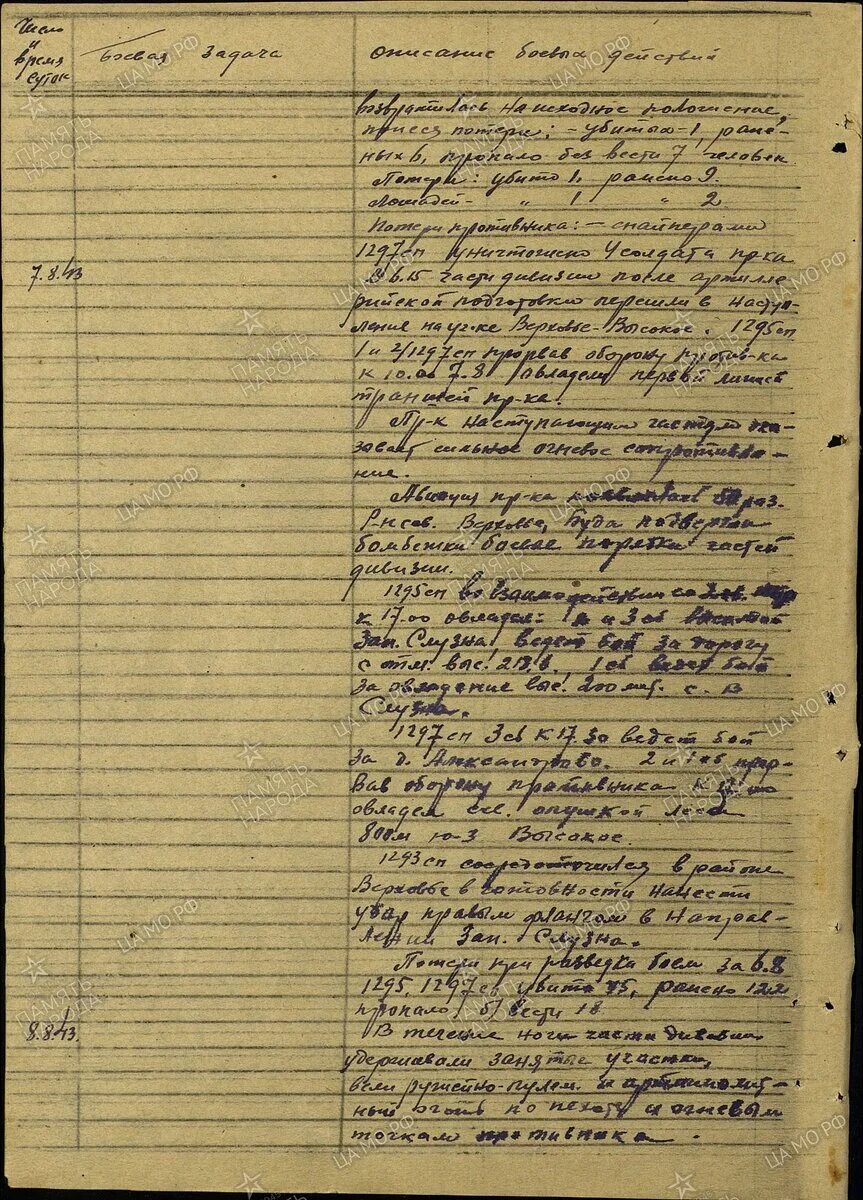 Число
и
время
суток
Боевая задача
Описание боевых действий
возвратилась на исходное положение,
понеся потери: – убитых – 1, ране-
ных 6, пропало без вести 7 человек
Потери: убито 1, ранено 9.
Лошадей – " 1 " 2.
Потери противника: – снайперами
1297сп уничтожено 4 солдата пр-ка
7.8.43
В 6.15 части дивизии после артилле-
рийской подготовки перешли в насту-
пление на уч-ке Верховье-Высокое. 1295сп
1 и 2/1297сп прорвав оборону против-ка
к 10.00 7.8 овладели первой линией
траншей пр-ка.
Пр-к наступающим частям ока-
зывает сильное огневое сопротивле-
ние.
Авиация пр-ка раз.
Р-не сев. Верховье, Буда подвергла
бомбежки боевые порядки частей
дивизии.
1295сп во взаимодействии со
к 17.00 овладел: и 3 сб высотой
Зап. Слузна! ведет бой за дорогу
с отм. выс. 1 сб ведет бой
за овладение выс. 200 мт. с. в
Слузна.
1297сп 3 сб к 17.30 ведет бой
за д. Александрово. 2 и 1 сб прор-
вав оборону противника к
овладел сев. опушкой леса
800м ю-з Высокое.
1293сп сосредоточился в районе
Верховье в готовности нанести
удар правым флангом в направ-
лении Зап. Слузна.
Потери при разведка боем за 6.8
1295, 1297сп убито 75, ранено 122,
пропало б/вести 18
8.8.43.
В течение ночи части дивизии
удерживали занятые участки,
вели ружейно-пулем. и
ный огонь по пехоте и огневым
точкам противника.
ПАМЯТЬ
НАРОДА
ЦАМО.РФ